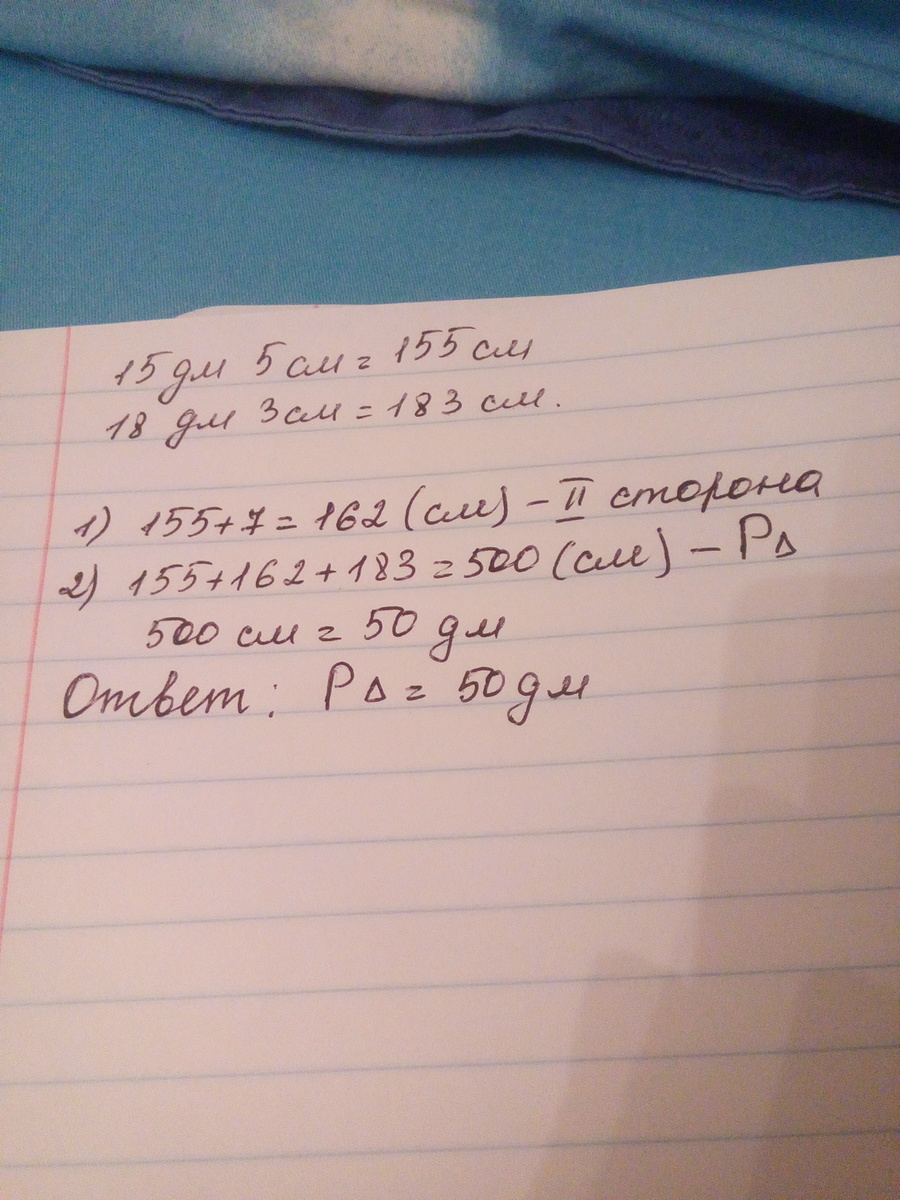 15 дм 5 см = 155 см
18 дм 3 см = 183 см.
1) 155+7=162 (см) – II сторона
2) 155+162+183=500 (см) – P∆
500 см = 50 дм
Ответ: P∆ = 50 дм